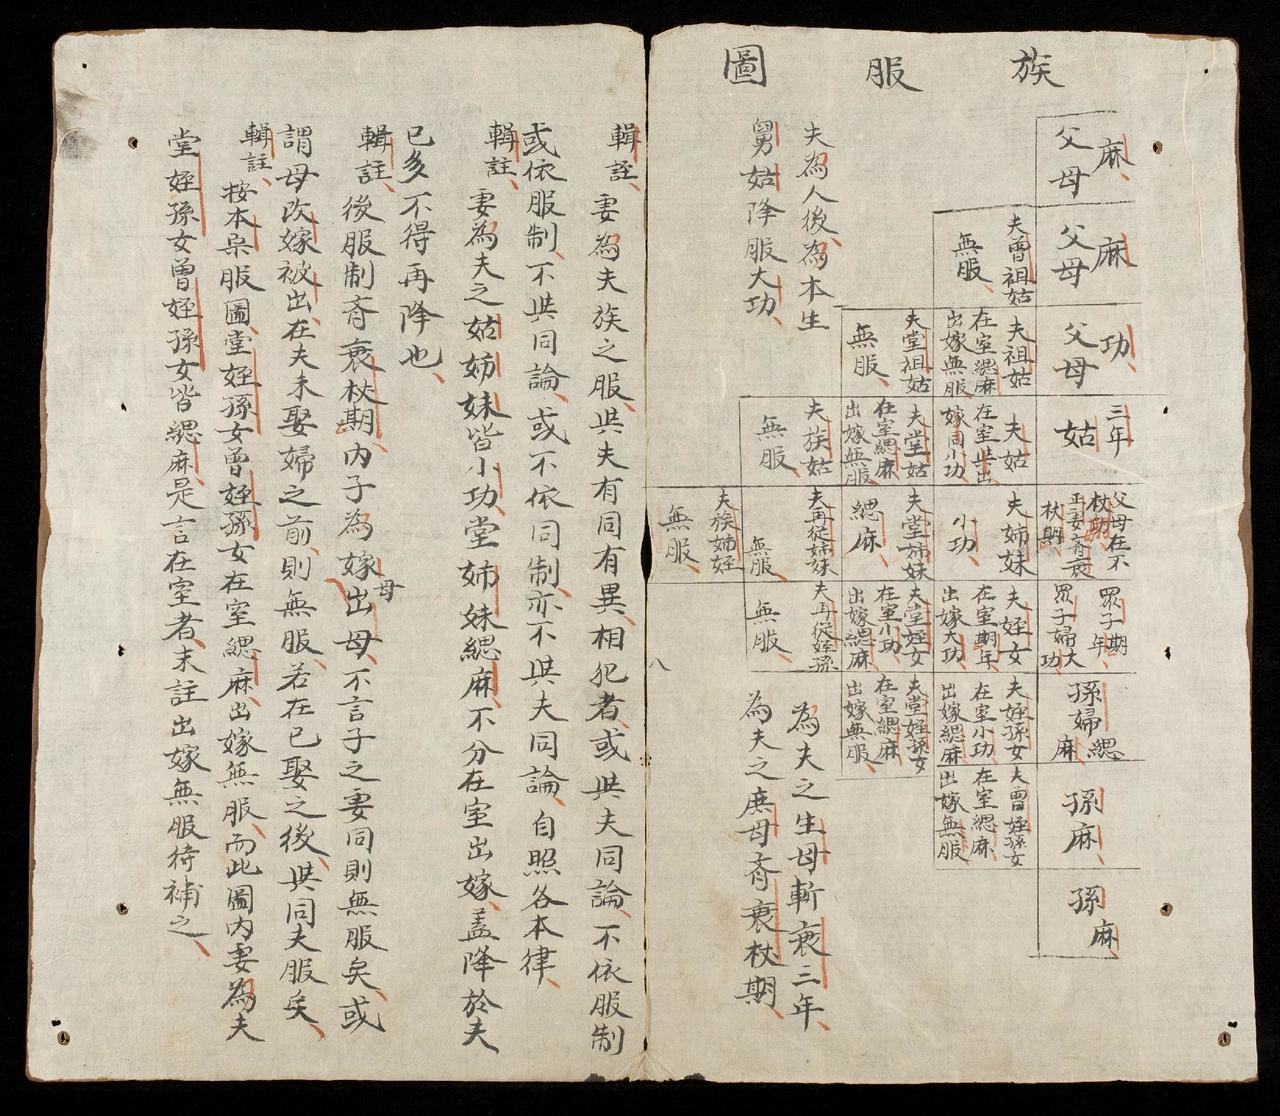 族服圖
麻、
父母
麻
父母
功、
父母
三年
姑
父母在不
杖期
正妻齊衰
杖期
眾子期
年、
眾子婦大
功
孫婦緦
麻
孫
麻、
孫
麻
夫曾祖姑
無服、
夫祖姑
在室緦麻
出嫁無服
夫姑
在室與出
嫁同小功
夫姊妹
小功、
夫姪女
在室期年
出嫁大功、
夫姪孫女
在室小功
出嫁緦麻
夫曾姪孫女
在室緦麻
出嫁無服
夫堂祖姑
無服、
夫堂姑
在室緦麻
出嫁無服
夫堂姊妹
緦麻、
夫堂姪女
在室小功、
出嫁緦麻
夫堂姪孫女
在室緦麻
出嫁無服、
夫族姑
無服、
夫再從姊妹
無服、
夫再從姪孫
無服、
夫族姊姪
無服、
夫為人後為本生
舅姑降服大功、
為夫之生母斬衰三年、
為夫之庶母齊衰杖期、
八
輯註、妻為夫族之服、與夫有同有異、相犯者、或與夫同論、不依服制
或依服制、不與同論、或不依同制、亦不與夫同論、自照各本律、
輯註、妻為夫之姑姊妹皆小功、堂姊妹緦麻、不分在室出嫁、蓋降於夫
已多不得再降也、
輯註、後服制齊衰杖期、內子為嫁母出母、不言子之妻同則無服矣、或
謂母改嫁被出、在夫未娶婦之前、則無服、若在已娶之後、與同夫服矣、
輯註、按本宗服圖、堂姪孫女曾姪孫女在室緦麻、出嫁無服、而此圖內妻為夫
堂姪孫女曾姪孫女皆緦麻、是言在室者、未註出嫁無服待補之、